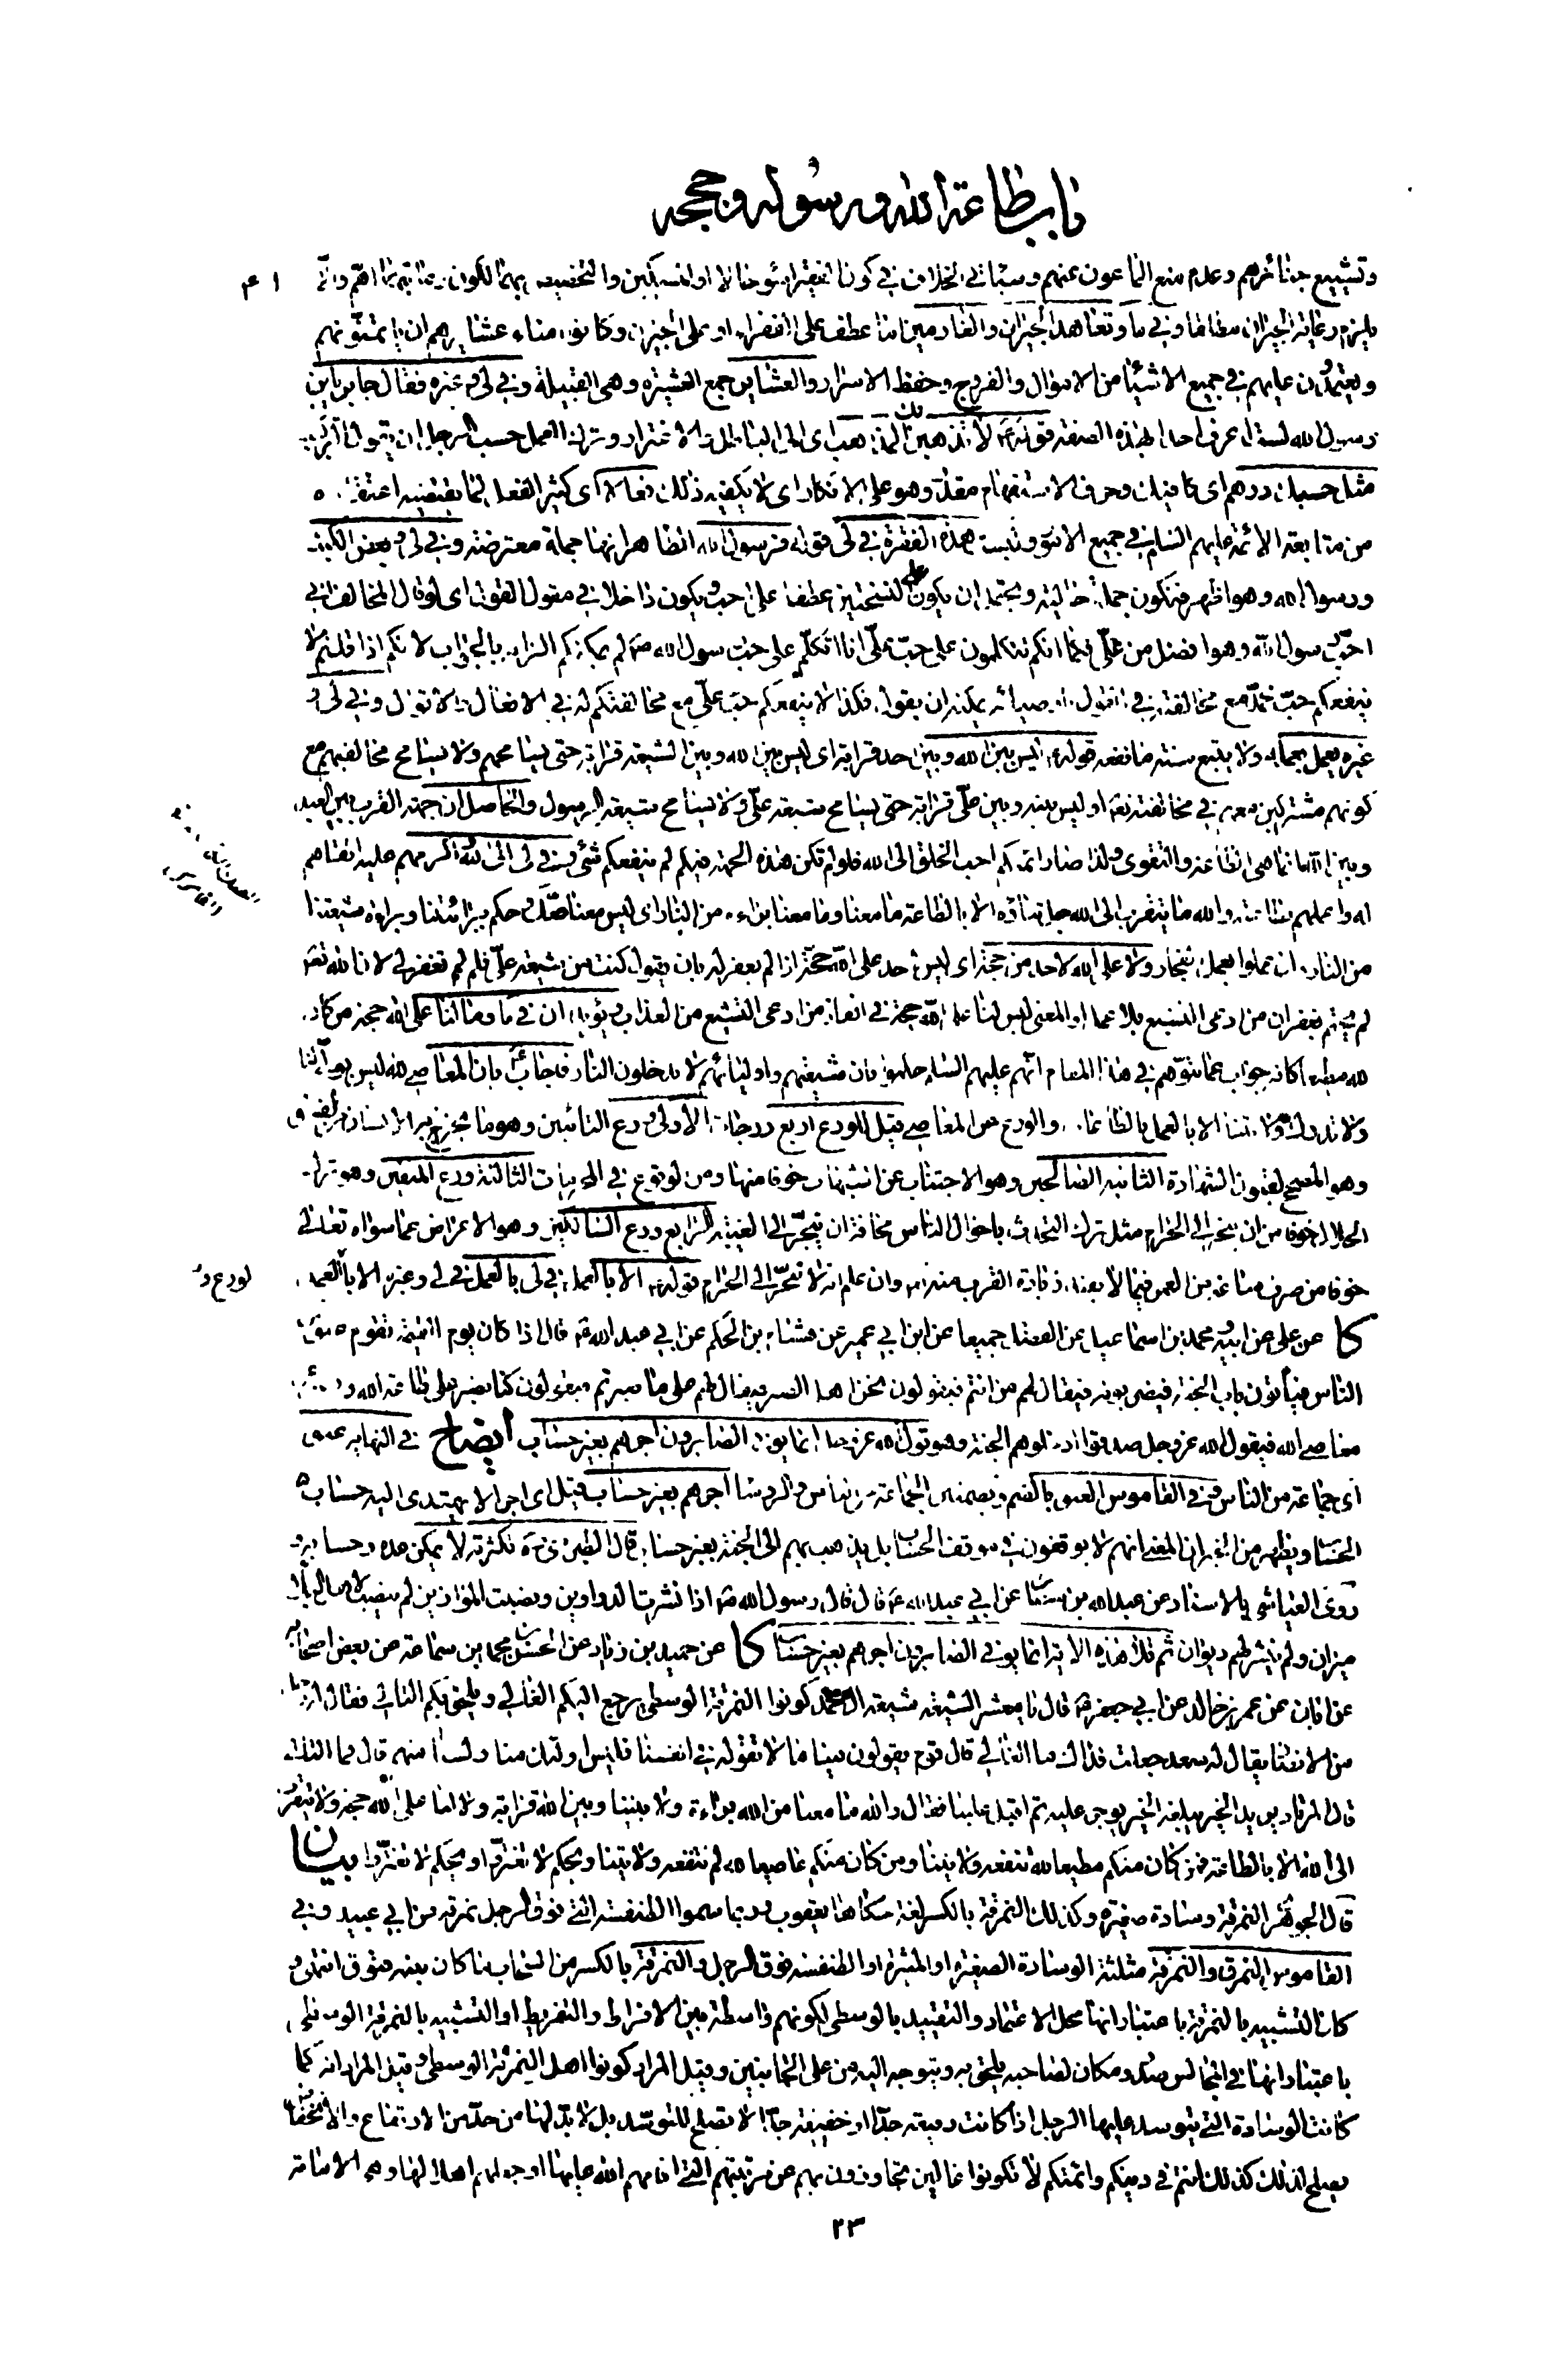 باب طاعة الله ورسوله وحججه
وتشييع جنائزهم وعدم منع الماعون عنهم وسيأتي الخلاف في كون الفقير أسوء حالا او المسكين والتخصيص بهما لكون رعايتهما اهم والا
يلزم رعاية الجيران مطلقا وفي ما وتعاهد الجيران والغارمين اما عطف على الفقراء او على الجيران وكانوا امناء عشايرهم اى يأتمنونهم
ويعتمدون عليهم في جميع الاشياء من الاموال والفروج وحفظ الاسرار والعشاير جمع العشيرة وهى القبيلة وفي لى وغيره فقال جابر يا بن
رسول الله لست اعرف احدا بهذه الصفة قوله ع لا تذهبن بك المذاهب اى الى الباطل والاغترار وترك العمل حسب الرجل ان يقول التركيب
مثل حسبك درهم اى كافيك وحرف الاستفهام مقدر وهو على الانكار اى لا يكفيه ذلك فعالا اى كثير الفعل لما يقتضيه اعتقاده
من متابعة الائمة عليهم السلام في جميع الامور وليست هذه الفقرة في لى قوله فرسول الله الظاهر انها جملة معترضة وفي لى وبعض الكتب
ورسول الله وهو اظهر فتكون جملة حالية ويحتمل ان يكون على النسختين عطفا على احب ويكون داخلا في مقول القول اى لو قال المخالف اني
احب رسول الله وهو افضل من علي فكما انكم تتكلمون على حب علي انا اتكل على حب رسول الله ص لم يمكنكم الزامه بالجواب لانكم اذا قلتم لا
ينفعكم حب محمد مع مخالفته في القول بوصيائه يمكنه ان يقول فكذا لا ينفعكم حب علي مع مخالفتكم له في الافعال والاقوال وفي لى و
غيره يعمل بعمله ولا يتبع سنته ما نفعه قوله ع ليس بين الله وبين احد قرابة اى ليس بين الله وبين الشيعة قرابة حتى يسامحهم ولا يسامح مخالفيهم مع
كونهم مشتركين معهم في مخالفته تعالى او ليس بينه وبين علي قرابة حتى يسامح شيعة علي ولا يسامح شيعة الرسول والحاصل ان جهة القرب بين العبد
وبين الله انما هى الطاعة والتقوى ولذا صار ائمتكم احب الخلق الى الله فلو لم تكن هذه الجهة فيكم لم ينفعكم شئ وفي لى الى الله اكرمهم عليه اتقاهم
له واعملهم بطاعته والله ما يتقرب الى الله جل ثناؤه الا بالطاعة ما معنا وما معنا براءة من النار اى ليس معنا صك وحكم ببرائتنا وبراءة شيعتنا
من النار وان عملوا بعمل الفجار ولا على الله لاحد من حجة اى ليس لاحد على الله حجة اذا لم يغفر له بان يقول كنت من شيعة علي فلم لم تغفر لي لان الله تعالى
لم يحتم بغفران من ادعى التشيع بلا عمل او المعنى ليس لنا على الله حجة في انقاذ من ادعى التشيع من العذاب ويؤيده ان في ما وما لنا على الله حجة من كان
لله مطيعا كانه جواب عما يتوهم في هذا المقام انهم عليهم السلام حكموا بان شيعتهم واوليائهم لا يدخلون النار فاجاب ع بان العاصي لله ليس بولي لنا
ولا تدرك ولايتنا الا بالعمل بالطاعات والورع عن المعاصي قيل للورع اربع درجات الاولى ورع التائبين وهو ما يخرج به الانسان من الفسق
وهو المصحح لقبول الشهادة الثانية ورع الصالحين وهو الاجتناب عن الشبهات خوفا منها ومن الوقوع في المحرمات الثالثة ورع المتقين وهو ترك
الحلال خوفا من ان ينجر الى الحرام مثل ترك التحدث باحوال الناس مخافة ان ينجر الى الغيبة الرابع ورع السالكين وهو الاعراض عما سواه تعالى
خوفا من صرف ساعة من العمر فيما لا يفيد زيادة القرب منه تعالى وان علم انه لا ينجر الى الحرام قوله ع الا بالعمل في لى بالعمل في لى وغيره الا بالعمل
كا عن علي عن ابيه ومحمد بن اسماعيل عن الفضل جميعا عن ابن ابي عمير عن هشام بن الحكم عن ابي عبد الله ع قال اذا كان يوم القيمة تقوم عنق من
الناس فيأتون باب الجنة فيضربونه فيقال لهم من انتم فيقولون نحن اهل الصبر فيقال لهم على ما صبرتم فيقولون كنا نصبر على طاعة الله ونصبر عن
معاصي الله فيقول الله عز وجل صدقوا ادخلوهم الجنة وهو قول الله عز وجل انما يوفى الصابرون اجرهم بغير حساب ايضاح في النهاية عنق
اى جماعة من الناس وفي القاموس العنق بالضم وبضمتين الجماعة من الناس والرؤساء اجرهم بغير حساب قيل اى اجرا لا يهتدى اليه حساب
الحساب ويظهر من الخبر ان المعنى انهم لا يوقفون في موقف الحساب بل يذهب بهم الى الجنة بغير حساب قال الطبرسي ره لكثرته لا يمكن عده وحسابه و
روى العياشي بالاسناد عن عبد الله بن سنان عن ابي عبد الله ع قال قال رسول الله ص اذا نشرت الدواوين ونصبت الموازين لم ينصب لاهل البلاء
ميزان ولم ينشر لهم ديوان ثم تلا هذه الاية انما يوفى الصابرون اجرهم بغير حساب كا عن حميد بن زياد عن الحسن بن محمد بن سماعة عن بعض اصحابه
عن ابان عن عمرو بن خالد عن ابي جعفر ع قال يا معشر الشيعة شيعة ال محمد كونوا النمرقة الوسطى يرجع اليكم الغالي ويلحق بكم التالي فقال له رجل
من الانصار يقال له سعد جعلت فداك ما الغالي قال قوم يقولون فينا ما لا نقوله في انفسنا فليس اولئك منا ولسنا منهم قال فما التالي
قال المرتاد يريد الخير يبلغه الخير يوجر عليه ثم اقبل علينا فقال والله ما معنا من الله براءة ولا بيننا وبين الله قرابة ولا لنا على الله حجة ولا نتقرب
الى الله الا بالطاعة فمن كان منكم مطيعا لله تنفعه ولايتنا ومن كان منكم عاصيا لله لم تنفعه ولايتنا ويحكم لا تغتروا ويحكم لا تغتروا بيان
قال الجوهري النمرقة وسادة صغيرة وكذلك النمرقة بالكسر لغة حكاها يعقوب وربما سموا الطنفسة التي فوق الرحل نمرقة عن ابي عبيد وفي
القاموس النمرق والنمرقة مثلثة الوسادة الصغيرة او الميثرة او الطنفسة فوق الرحل والنمرقة بالكسر من السحاب ما كان بينه فتوق انتهى و
كان التشبيه بالنمرقة باعتبار انها محل الاعتماد والتقييد بالوسطى لكونهم واسطة بين الافراط والتفريط او التشبيه بالنمرقة الوسطى
باعتبار انها في المجالس صدر ومكان لصاحبه يلحق به ويتوجه اليه من على الجانبين وقيل المراد كونوا اهل النمرقة الوسطى وقيل المراد انه كما
كانت الوسادة التي يتوسد عليها الرجل اذا كانت رفيعة جدا او خفيضة جدا لا تصلح للتوسد بل لا بد لها من حد من الارتفاع والانخفاض حتى
يصلح لذلك كذلك انتم في دينكم وائمتكم لا تكونوا غالين تجاوزون بهم عن مرتبتهم التي اقامهم الله عليها او جعلهم اهلا لها وهي الامامة
٢٣